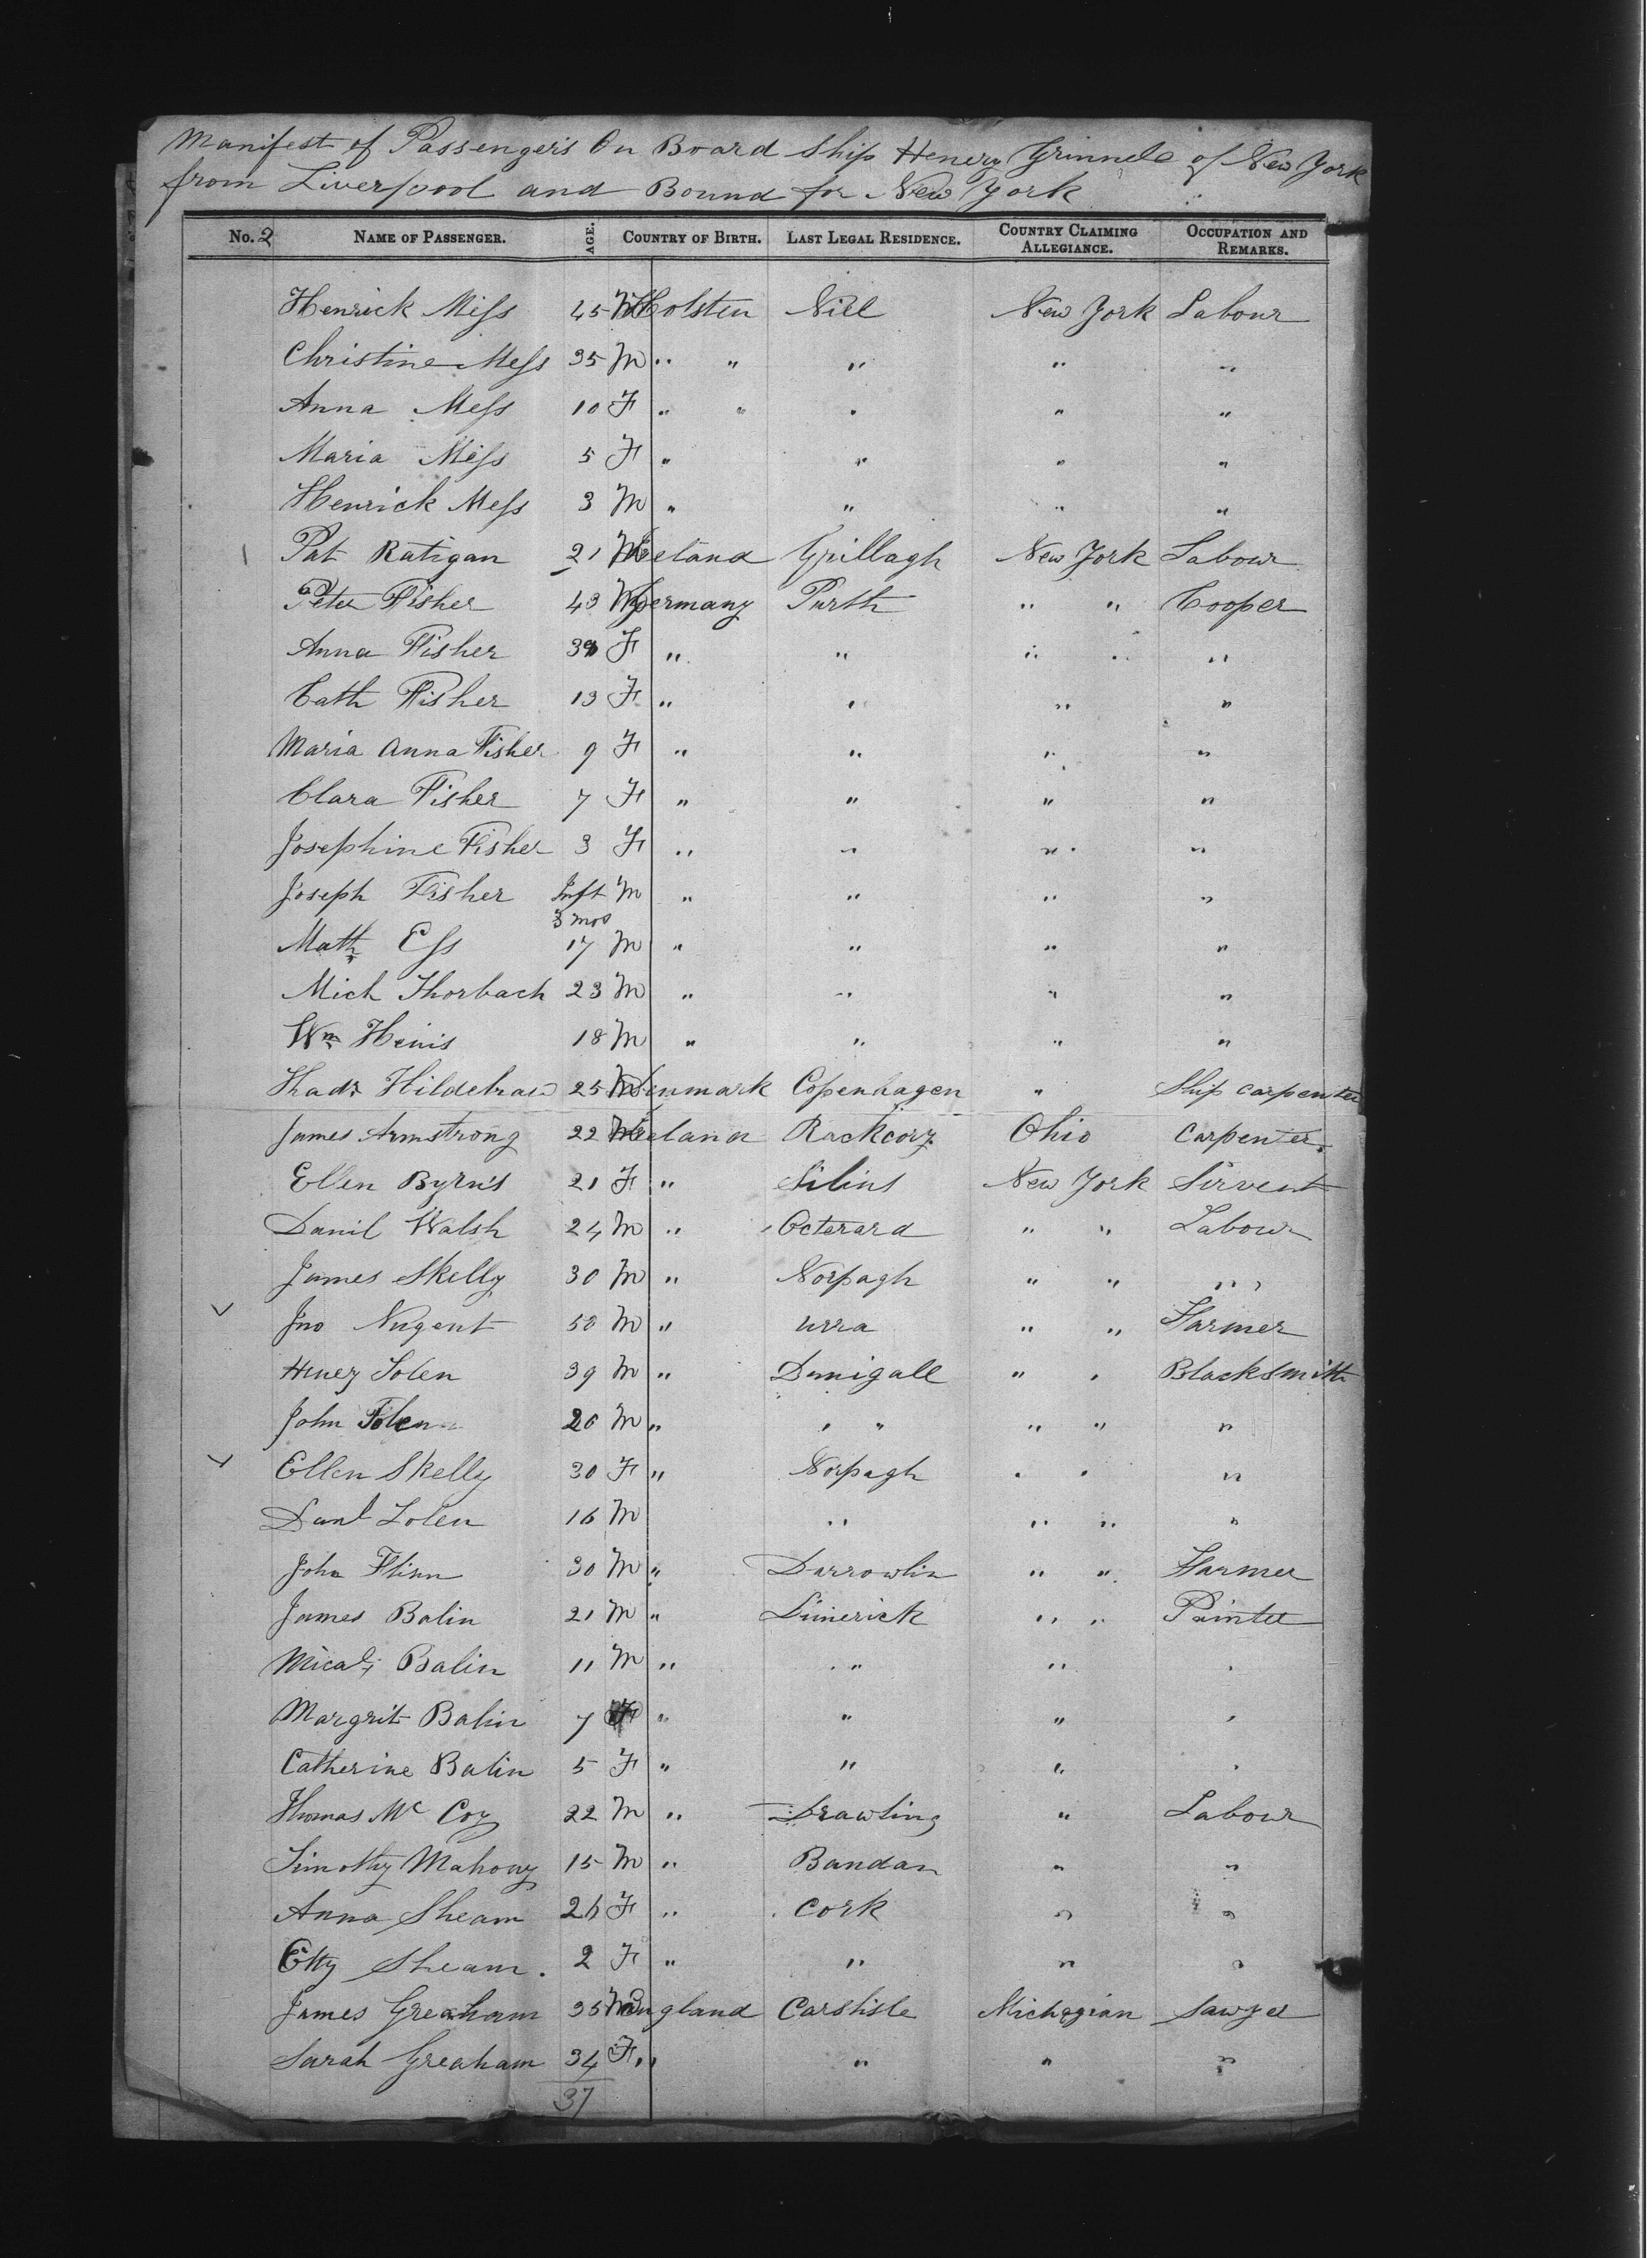 Manifest of Passengers On Board Ship Henery Grinnele of New York
from Liverpool and Bound for New York
No. 2 NAME OF PASSENGER. AGE. COUNTRY OF BIRTH. LAST LEGAL RESIDENCE. COUNTRY CLAIMING ALLEGIANCE. OCCUPATION AND REMARKS.
Henrick Mess 45 M Holsten Niel New York Labour
Christine Mess 35 M " " " " "
Anna Mess 10 F " " " " "
Maria Mess 5 F " " " "
Henrick Mess 3 M " " " "
Pat Ratigan 21 M Ireland New York Labour
Peter Fisher 43 M Germany Purth " " Cooper
Anna Fisher 39 F " " " " "
Cath Fisher 13 F " " " "
Maria Anna Fisher 9 F " " " "
Clara Fisher 7 F " " " "
Josephine Fisher 3 F " " " "
Joseph Fisher Inft 3 mos M " " " "
Math Ess 17 M " " " "
Mich Thorbach 23 M " " " "
Wm Heinis 18 M " " " "
25 M Denmark Copenhagen " Ship carpenter
James Armstrong 22 M Ireland Rackcory Ohio Carpenter
Ellen Byrns 21 F " New York Sirvent
Danil Walsh 24 M " Octerard " " Labour
James Skelly 30 M " Norpagh " " "
Jno Nugent 50 M " urra " " Farmer
Henry Tolen 39 M " Dunigall " " Blacksmith
John Tolen 20 M " " " " " "
Ellen Skelly 30 F " Norpagh " " "
Danl Tolen 16 M " " " "
John Flinn 30 M " Darrowlin " " Farmer
James Balin 21 M " Limerick " " Painter
Mical Balin 11 M " " " "
Margrit Balin 7 F " " " "
Catherine Balin 5 F " " " "
Thomas Mc Coy 22 M " Drawling " Labour
Timothy Mahony 15 M " Bandan " "
Anna Sheam 26 F " Cork " "
Etty Sheam. 2 F " " " "
James Greaham 35 M England Carslisle Michegian Sawyer
Sarah Greaham 34 F " " " "
37